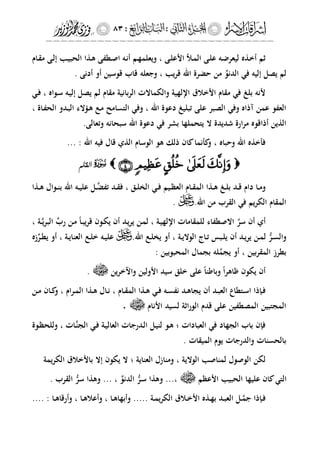 : ٨٣ :
ثم أخذه ليعرضه على الملأ الأعلى ، ويعلمهم أنه اصطفى هذا الحبيب إلى مقام
لم يصل إليه في الدنوِّ من حضرة الله قريب ، وجعله قاب قوسين أو أدنى .
لأنه بلغ في مقام الأخلاق الإلهية والكمالات الربانية مقام لم يصل إليه سواه ، في
العفو عمن آذاه وفي الصبر على تبليغ دعوة الله ، وفي التسامح مع هؤلاء البدو الحفاة ،
الذين أذاقوه مرارة شديدة لا يتحملها بشر في دعوة الله سبحانه وتعالى.
فأخذه الله وحباه ، وكأنما كان ذلك هو الوسام الذي قال فيه الله : ...
﴿ وَإِنَّكَ لَعَلَىٰ خُلُقٍ عَظِيمٍ ﴾
وما دام قد بلغ هذا المقام العظيم في الخلق ، فقد تفضَّل عليه الله بنوال هذا
المقام الكريم في القرب من الله .
أي أن سرَّ الاصطفاء للمقامات الإلهية ، لمن يريد أن يكون قريباً من ربِّ البريَّة ،
والسرُّ لمن يريد أن يلبس تاج الولاية ، أو يخلع الله عليه خلع العناية ، أو يطرِّزه
بطرز المقربين ، أو يجمِّله بجمال المحبوبين :
أن يكون ظاهراً وباطناً على خلق سيد الأولين والآخرين .
فإذا استطاع العبد أن يجاهد نفسه في هذا المقام ، نال هذا المرام ، وكان من
المجتبين المصطفين على قدم الوراثة لسيد الأنام .
فإن باب الجهاد في العبادات ؛ هو لنيل الدرجات العالية في الجنَّات ، وللحظوة
بالحسنات والدرجات يوم الميقات .
لكن الوصول لمناصب الولاية ، ومنازل العناية ؛ لا يكون إلا بالأخلاق الكريمة
التي كان عليها الحبيب الأعظم ،... وهذا سرُّ الدنوِّ ، ... وهذا سرُّ القرب .
فإذا جمُل العبد بهذه الأخلاق الكريمة ..... وأبهاها ، وأعلاها ، وأرقاها : ....